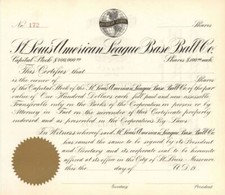 No. 172 Shares
St. Louis American League Base Ball Co.
Capital Stock $ Shares $100 each
This Certifies that
is the owner of Shares
of the Capital Stock of the St. Louis American League Base Ball Co. of the par
value of One Hundred Dollars each, full paid and non assessable,
Transferable only on the Books of the Corporation in person or by
Attorney in Fact on the surrender of this Certificate
In Witness whereof said St. Louis American League Base Ball Co.
has caused this Certificate to be signed by its President
and Secretary and its corporate seal to be hereunto
affixed at its office in the City of St. Louis Missouri
this day of A.D.
Secretary President